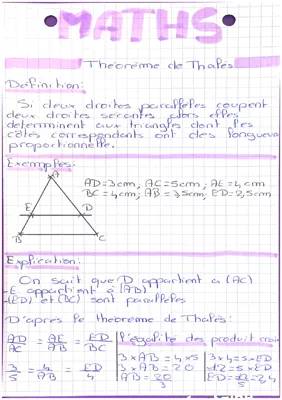 MATHS
Théorème de Thalès
Définition:
Si deux droites parallèles coupent
deux droites sécantes alors elles
déterminent aux triangles dont les
côtés correspondants ont des longueurs
proportionnelle.
Exemples:
A
E D
B C
AD=3cm, AC=5cm, AE=4cm
BC=4cm, AB=?,5cm, ED=2,5cm
Explication:
On sait que D appartient a (AC)
-E appartient a (AB)
-(ED) et (BC) sont parallèles
D'après le théorème de Thalès:
AD/AC = AE/AB = ED/BC
3/5 = 4/AB = ED/4
l'égalité des produit croix
3×AB = 4×5
3×AB = 20
AB = 20/3
3×4 = 5×ED
12 = 5×ED
ED = 12/5 = 2,4